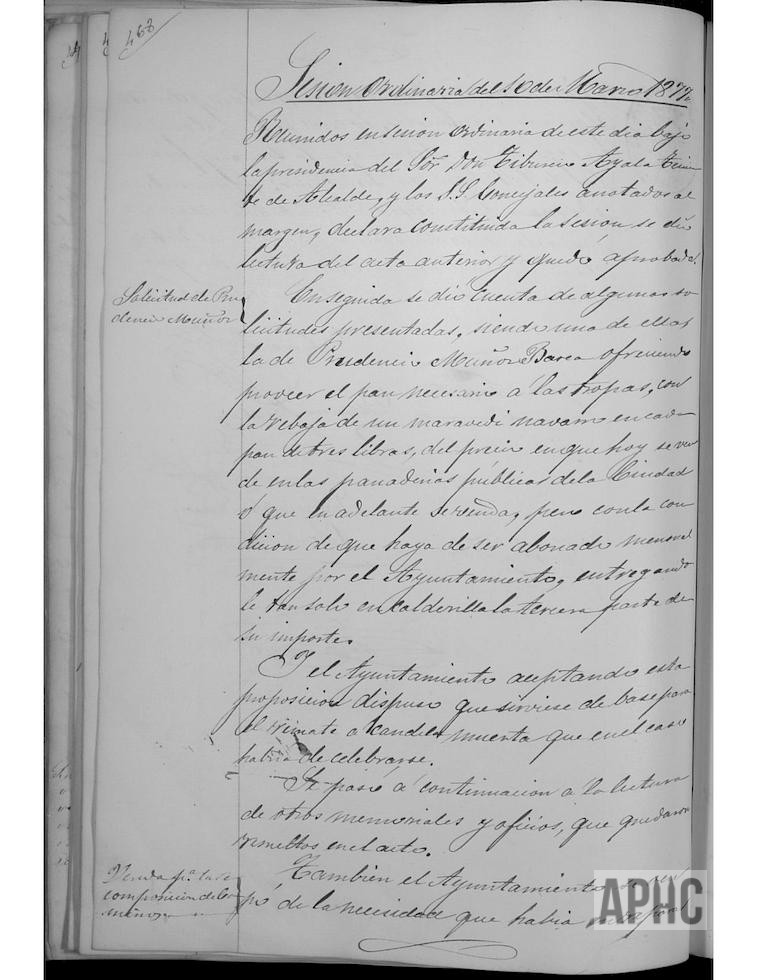 APHC
463
Sesion Ordinaria del 10 de Marzo 1877.
Reunidos en sesion ordinaria de este dia bajo
la presidencia del Sor. Don Tiburcio Ayala Tenien
te de Alcalde, y los S.S. Concejales anotados al
margen, declara constituida la sesion se dió
lectura del acta anterior y quedó aprobada.
Solicitud de Pru
dencio Muñoz
En seguida se dió cuenta de algunas so
licitudes presentadas, siendo una de ellas
la de Prudencio Muñoz Barea ofreciendo
proveer el pan necesario a las tropas, con
la rebaja de un maravedi navarro en cada
pan de tres libras, del precio en que hoy se ven
de en las panaderias públicas de la Ciudad
ó que en adelante se venda, pero con la con
dicion de que haya de ser abonado mensual
mente por el Ayuntamiento, entregando
le tan solo en calderilla la tercera parte de
su importe.
Y el Ayuntamiento aceptando esta
proposicion dispuso que sirviese de base para
el remate a candela muerta que en el caso
habia de celebrarse.
Se pasó á continuacion a la lectura
de otros memoriales y oficios, que quedaron
resueltos en el acto.
composicion de
Tambien el Ayuntamiento se ocu
pó de la necesidad que habia
APHC